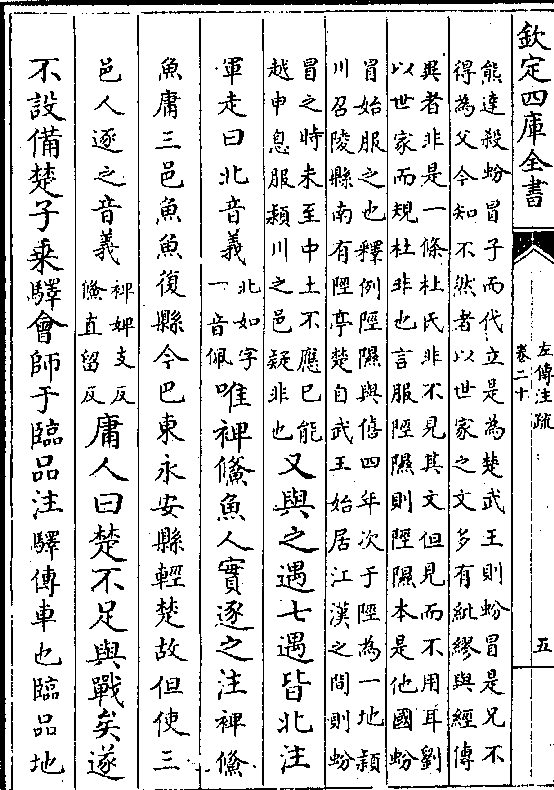 欽定四庫全書
左傳注疏
卷二十
五
熊達殺蚡冒子而代立是為楚武王則蚡冒是兄不
得為父今知不然者以世家之文多有紕繆與經傳
異者非是一條杜氏非不見其文但見而不用耳劉
以世家而規杜非也言服陘隰則陘隰本是他國蚡
冒始服之也釋例陘隰與僖四年次于陘為一地潁
川召陵縣南有陘亭楚自武王始居江漢之間則蚡
冒之時未至中土不應已能
越申息服潁川之邑疑非也
又與之遇七遇皆北注
軍走曰北音義
北如字
一音佩
唯裨鯈魚人實逐之注裨鯈
魚庸三邑魚魚復縣今巴東永安縣輕楚故但使三
邑人逐之音義
裨婢支反
鯈直留反
庸人曰楚不足與戰矣遂
不設備楚子乘驛會師于臨品注驛傳車也臨品地